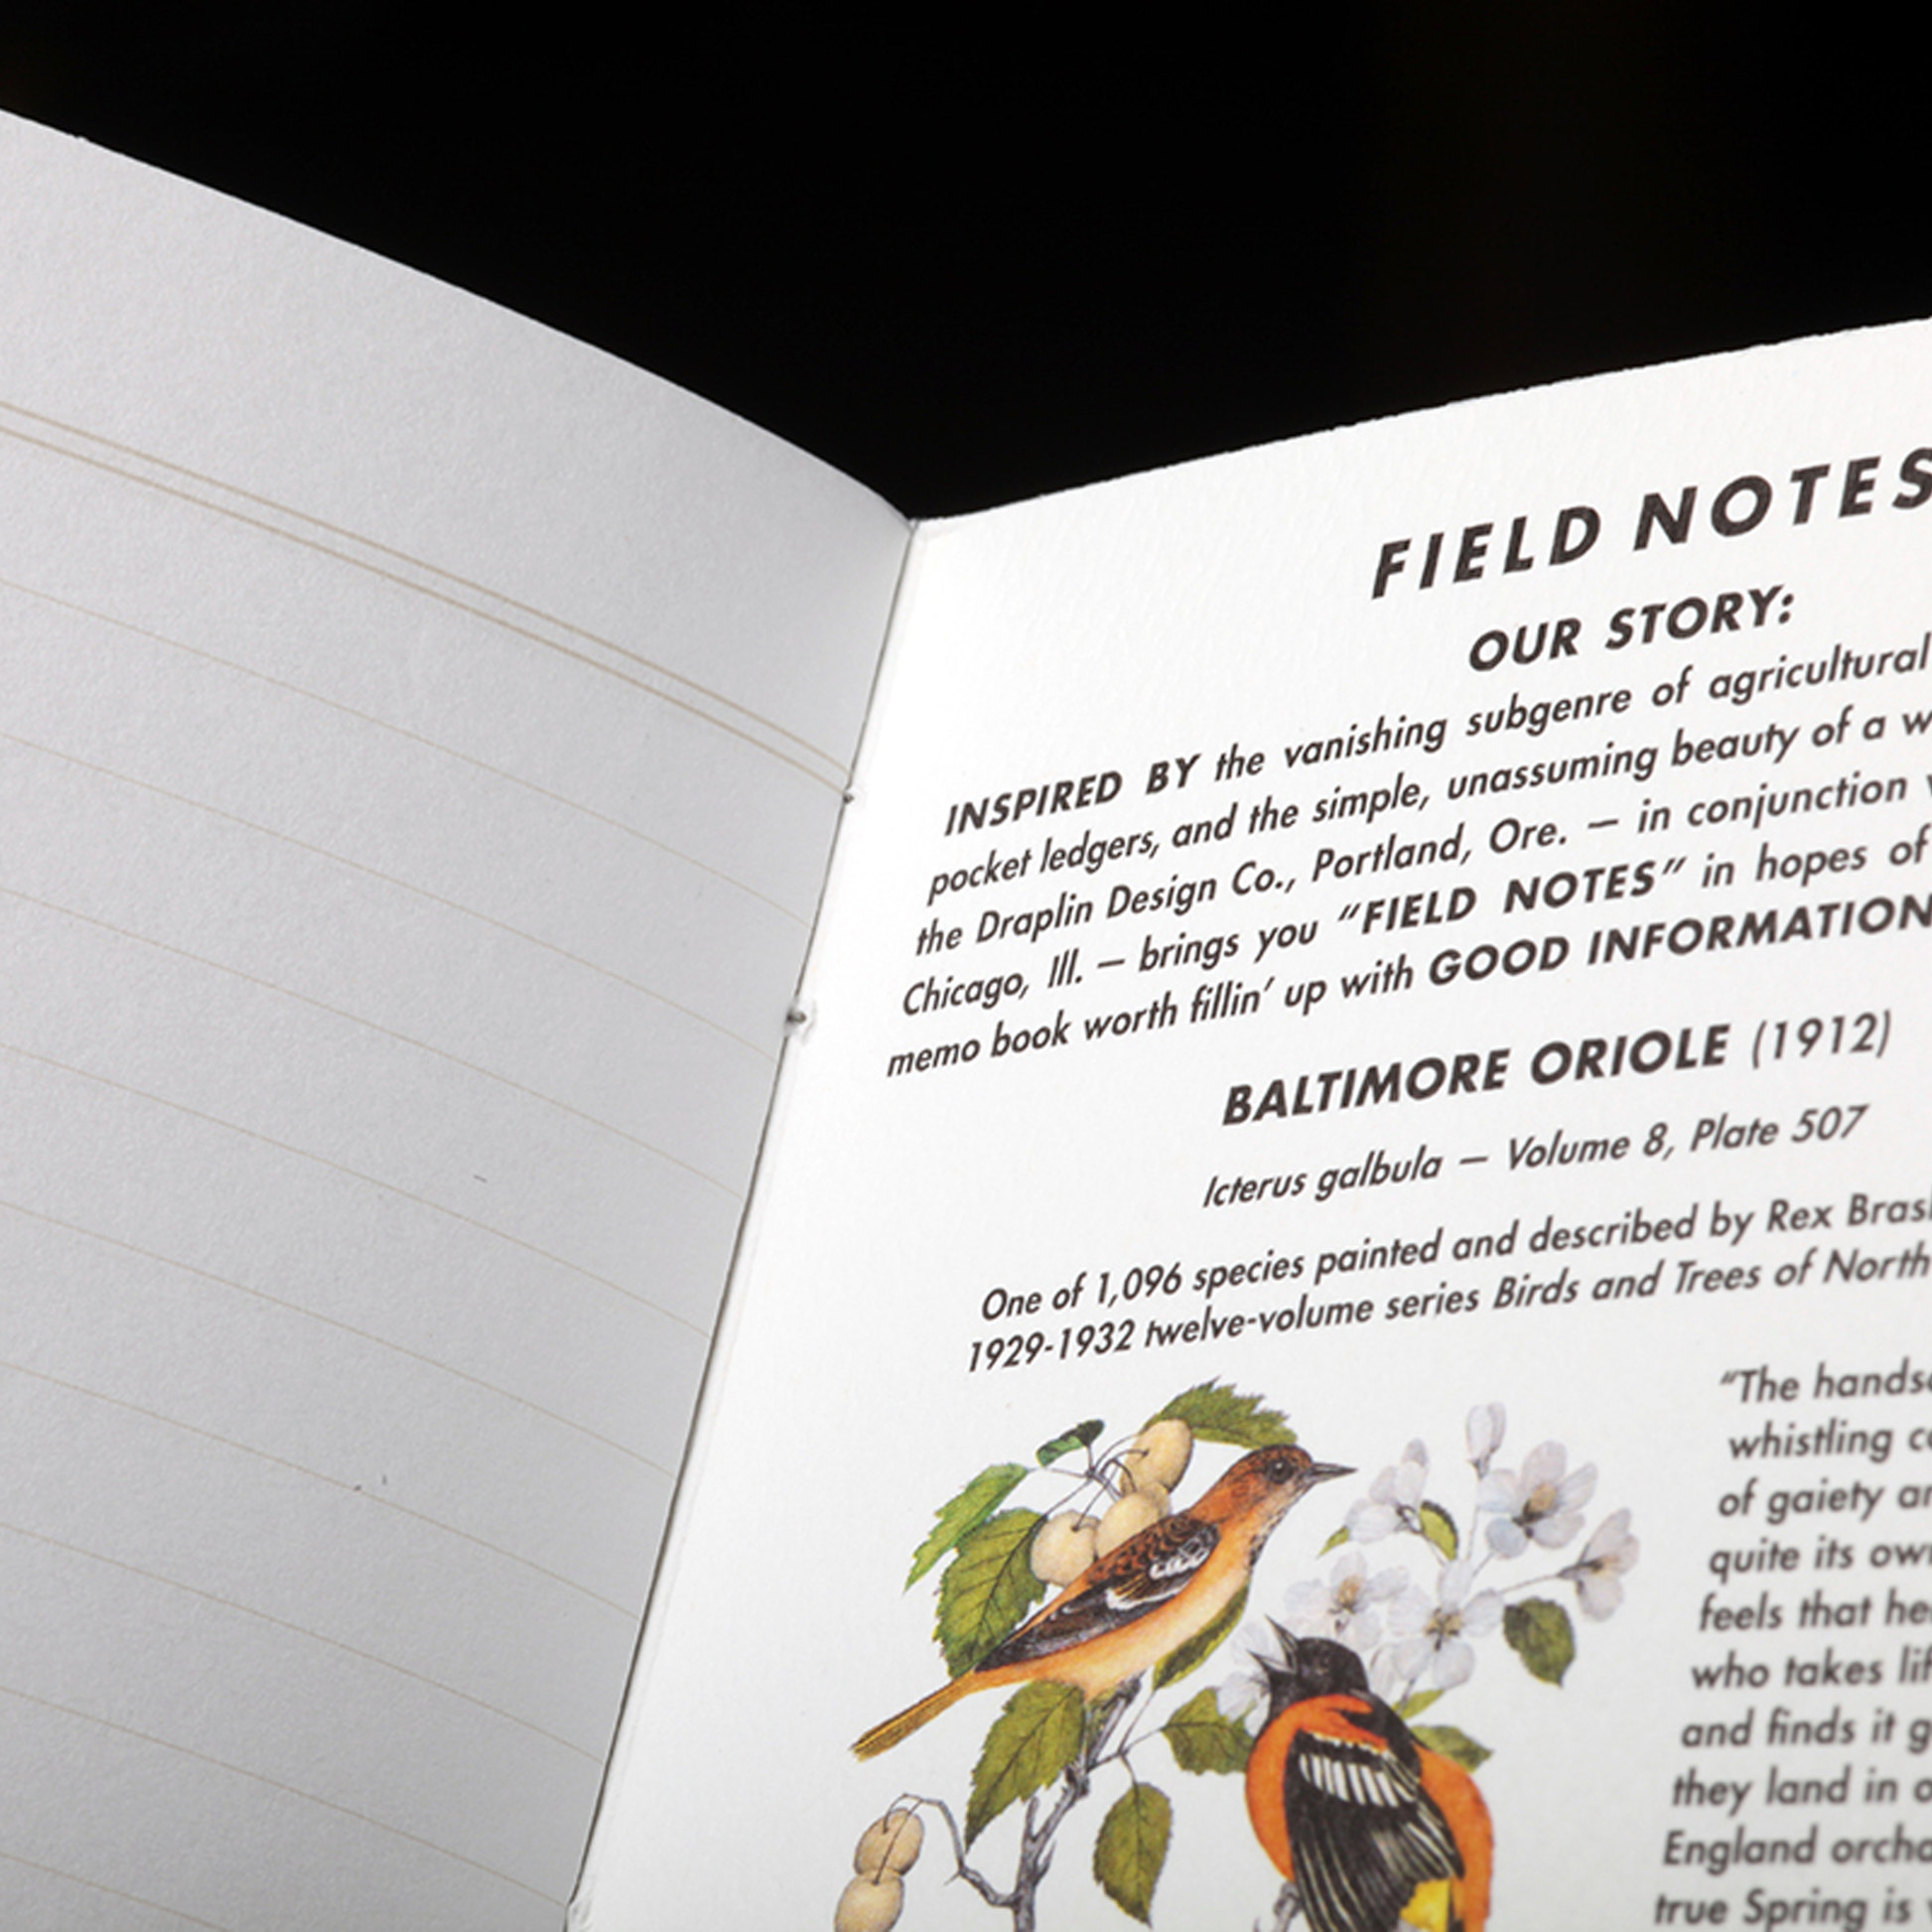 FIELD NOTES
OUR STORY:
INSPIRED BY the vanishing subgenre of agricultural
pocket ledgers, and the simple, unassuming beauty of a
the Draplin Design Co., Portland, Ore. — in conjunction
Chicago, Ill. — brings you “FIELD NOTES” in hopes of
memo book worth fillin’ up with GOOD INFORMATION
BALTIMORE ORIOLE (1912)
Icterus galbula — Volume 8, Plate 507
One of 1,096 species painted and described by Rex
1929-1932 twelve-volume series Birds and Trees of North
“The
whistling
of gaiety
quite its
feels that
who takes
and finds it
they land in
England
true Spring is